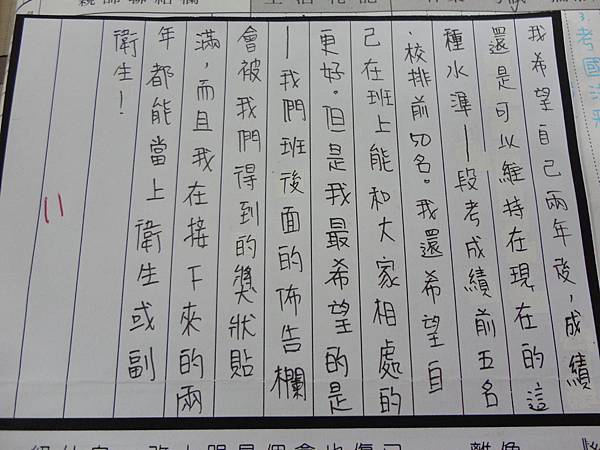 我希望自己兩年後，成績
還是可以維持在現在的這
種水準—段考成績前五名
、校排前50名。我還希望自
己在班上能和大家相處的
更好。但是我最希望的是
—我們班後面的佈告欄
會被我們得到的獎狀貼
滿，而且我在接下來的兩
年都能當上衛生或副
衛生！
11